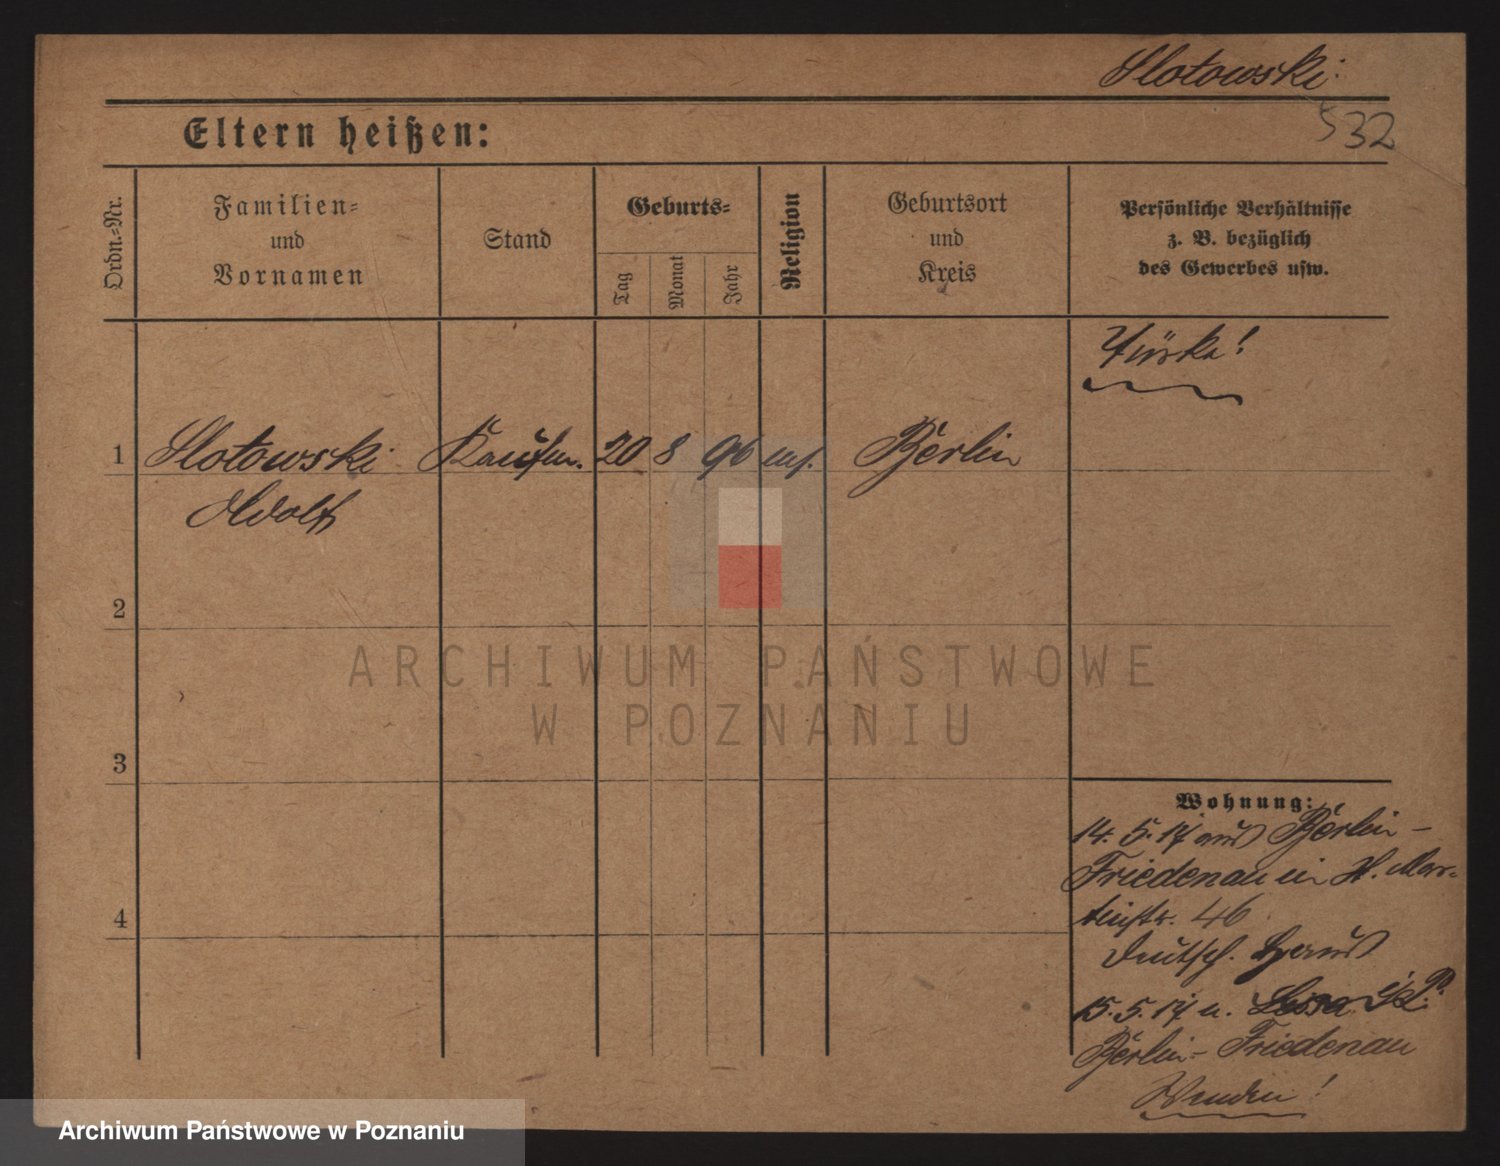 Slotowski.
532
Eltern heißen:
Ordn.-Nr.
Familien-
und
Vornamen
Stand
Geburts-
Tag
Monat
Jahr
Religion
Geburtsort
und
Kreis
Persönliche Verhältnisse
z. B. bezüglich
des Gewerbes usw.
Türke!
1 Slotowski Kaufm. 20 8 96 Berlin
Adolf
2
3
4
Wohnung:
14. 5. 17 aus Berlin-
Friedenau in H. Mar-
tinstr. 46
Deutsch. Haus
15. 5. 17 n.
Berlin-Friedenau
Wenden!
ARCHIWUM PAŃSTWOWE
W POZNANIU
Archiwum Państwowe w Poznaniu